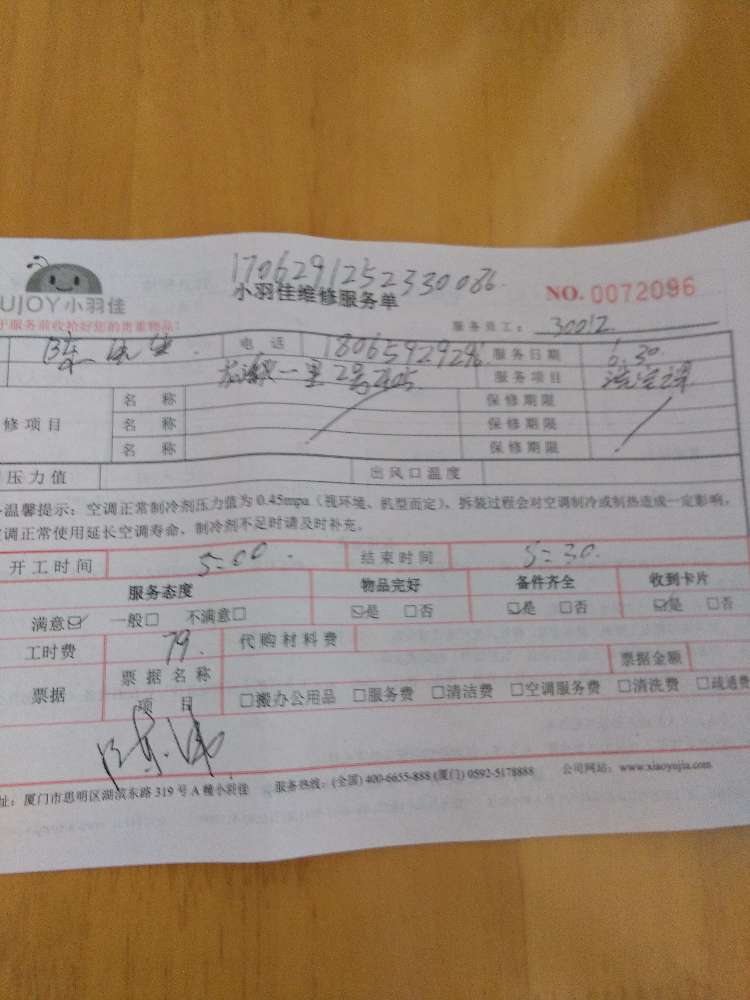 1706291252330086
UJOY小羽佳 小羽佳维修服务单 NO.0072096
于服务前收拾好您的贵重物品! 服务员工: 30012
陈 电话 18065929296 服务日期 6.30
一里2号 服务项目 洗空调
修项目 名称 保修期限
名称 保修期限
名称 保修期限
压力值 出风口温度
温馨提示:空调正常制冷剂压力值为0.45mpa(视环境、机型而定),拆装过程会对空调制冷或制热造成一定影响,
调正常使用延长空调寿命、制冷剂不足时请及时补充。
开工时间 5:00 结束时间 5:30.
服务态度 物品完好 备件齐全 收到卡片
满意☑ 一般□ 不满意□ ☑是 □否 ☑是 □否 ☑是 □否
工时费 79. 代购材料费
票据 票据名称 票据金额
项目 □搬办公用品 □服务费 □清洁费 □空调服务费 □清洗费 □疏通费
陈
址:厦门市思明区湖滨东路319号A幢小羽佳 服务热线:(全国)400-6655-888(厦门)0592-5178888 公司网站:www.xiaoyujia.com